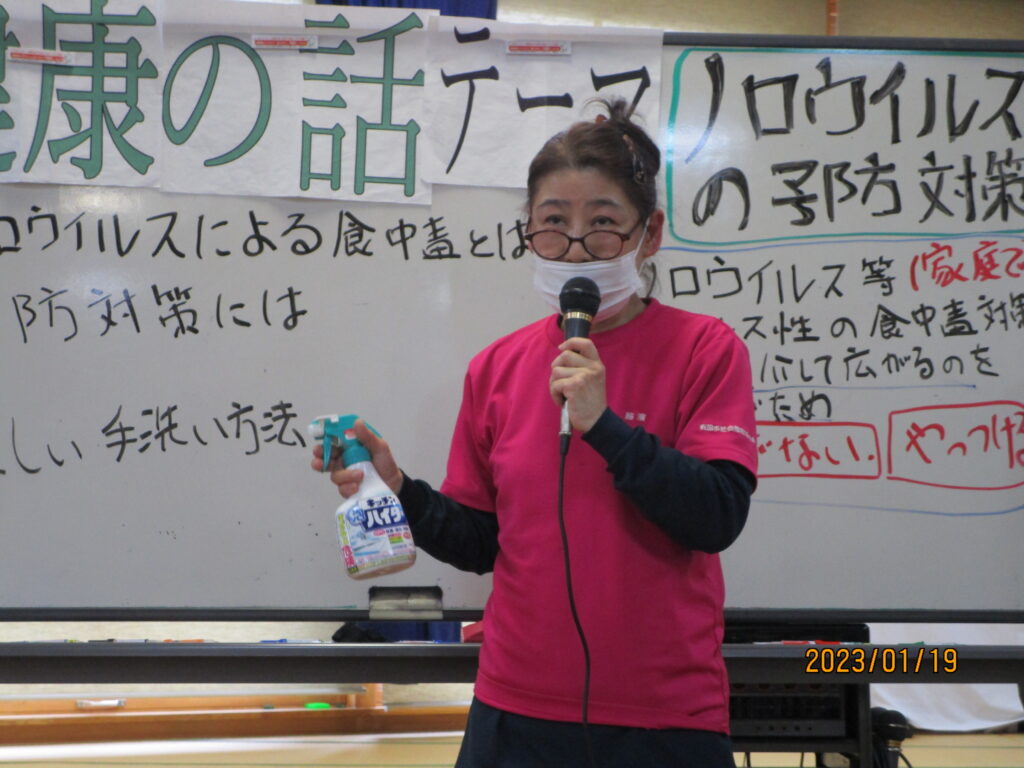 健康の話テーマ
ノロウイルス
の予防対策
ロウイルスによる食中毒とは
防対策には
しい手洗い方法
ロウイルス等(家庭で
ス性の食中毒対策
介して広がるのを
ため
ない.
やっつけ
キッチン
ハイター
2023/01/19